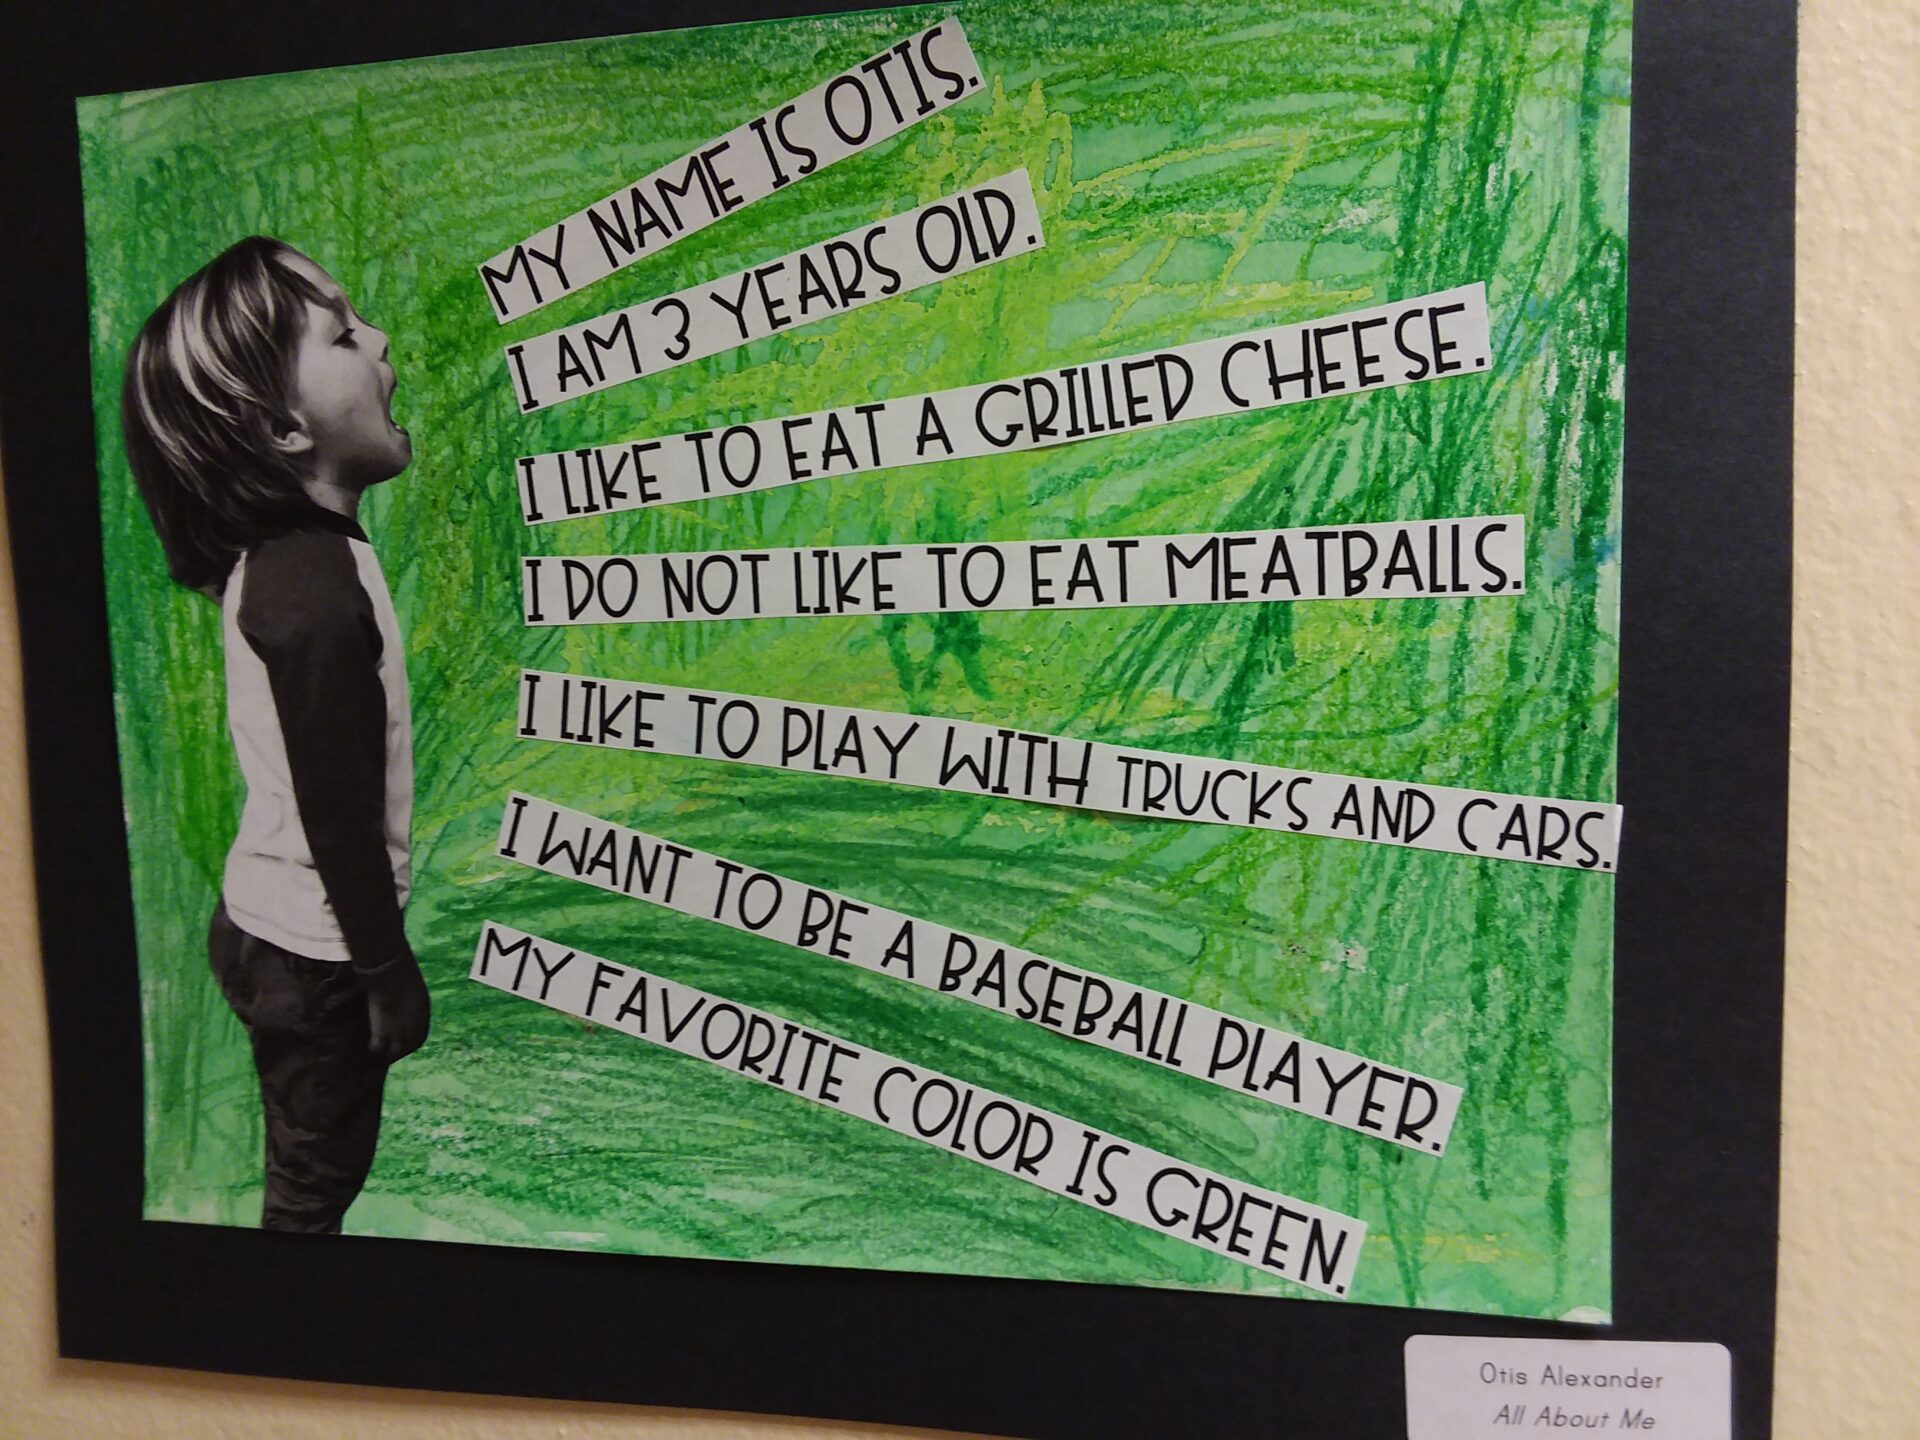 MY NAME IS OTIS.
I AM 3 YEARS OLD.
I LIKE TO EAT A GRILLED CHEESE.
I DO NOT LIKE TO EAT MEATBALLS.
I LIKE TO PLAY WITH TRUCKS AND CARS.
I WANT TO BE A BASEBALL PLAYER.
MY FAVORITE COLOR IS GREEN.
Otis Alexander
All About Me